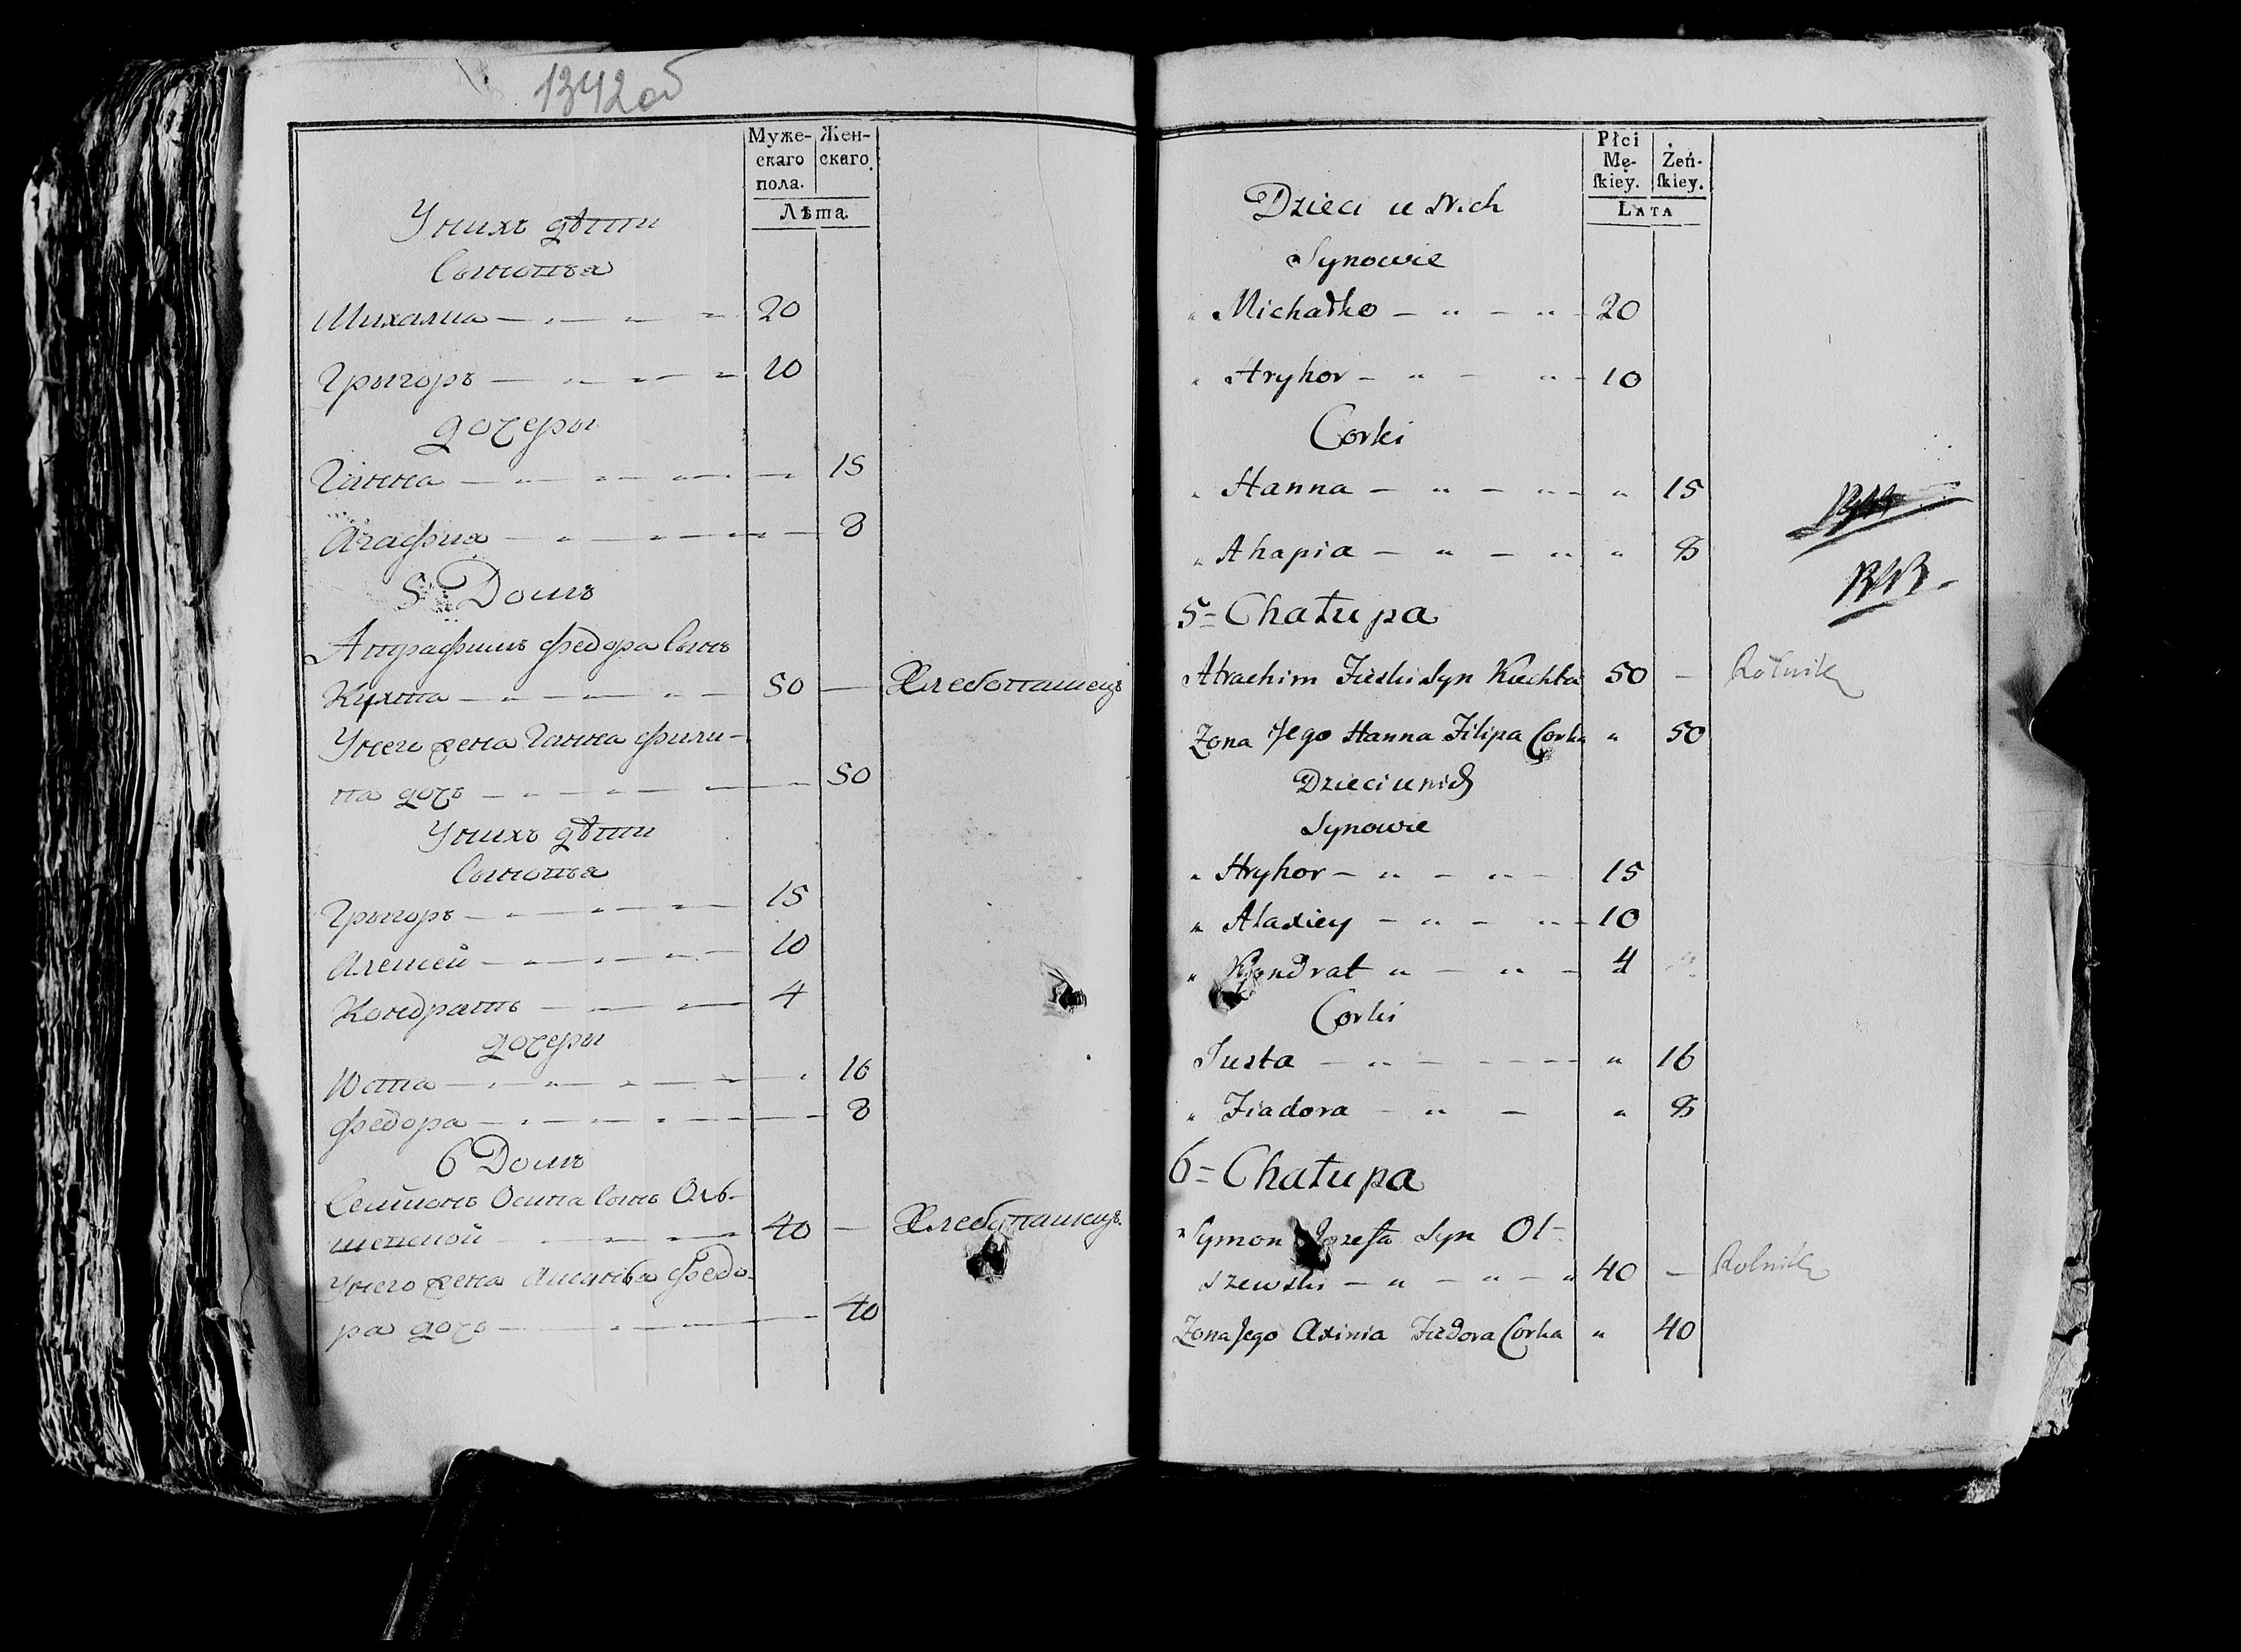 1342об
Муже-
скаго
пола.
Жен-
скаго.
Лѣта.
У нихъ дѣти
Сыновья
Михалка 20
Грыгоръ 10
дочеры
Ганна 15
Агафия 8
5 Домъ
федора Сынъ
Кухта 50 Хлебопашецъ
У него жена Ганна фили-
па дочь 50
У нихъ дѣти
Сыновья
Грыгоръ 15
Алексей 10
Кондратъ 4
дочеры
Юста 16
федора 8
6 Домъ
Осипа Сынъ Оль-
шевской 40 Хлебопашецъ
У него жена федо-
ра дочь 40
Płci
Mę-
ſkiey.
Żeń-
ſkiey.
Lata
Dzieci u Nich
Synowie
" Michałko 20
" Hryhor 10
Corki
" Hanna " 15
" Ahapia " 8
1343
5 = Chałupa
Atrachim Syn Kuchta 50 — Rolnik
Zona Jego Hanna Filipa Corka " 50
Dzieci u nich
Synowie
" Hryhor 15
" Alaxiey 10
" Kondrat 4
Corki
Justa " 16
" Fiadora " 8
6 = Chałupa
" Symon Jozefa Syn Ol-
szewski 40 — Rolnik
Zona Jego Axinia Fiedora Corka " 40